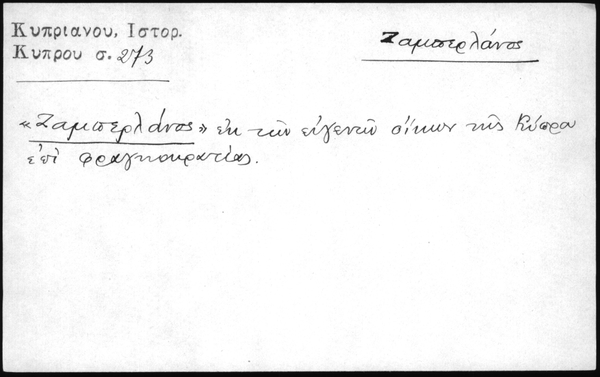 Κυπριανου, Ιστορ.
Κυπρου σ. 273
Ζαμπερλάνος
«Ζαμπερλάνος» εκ των ευγενών οίκων της Κύπρου
επί φραγκοκρατίας.